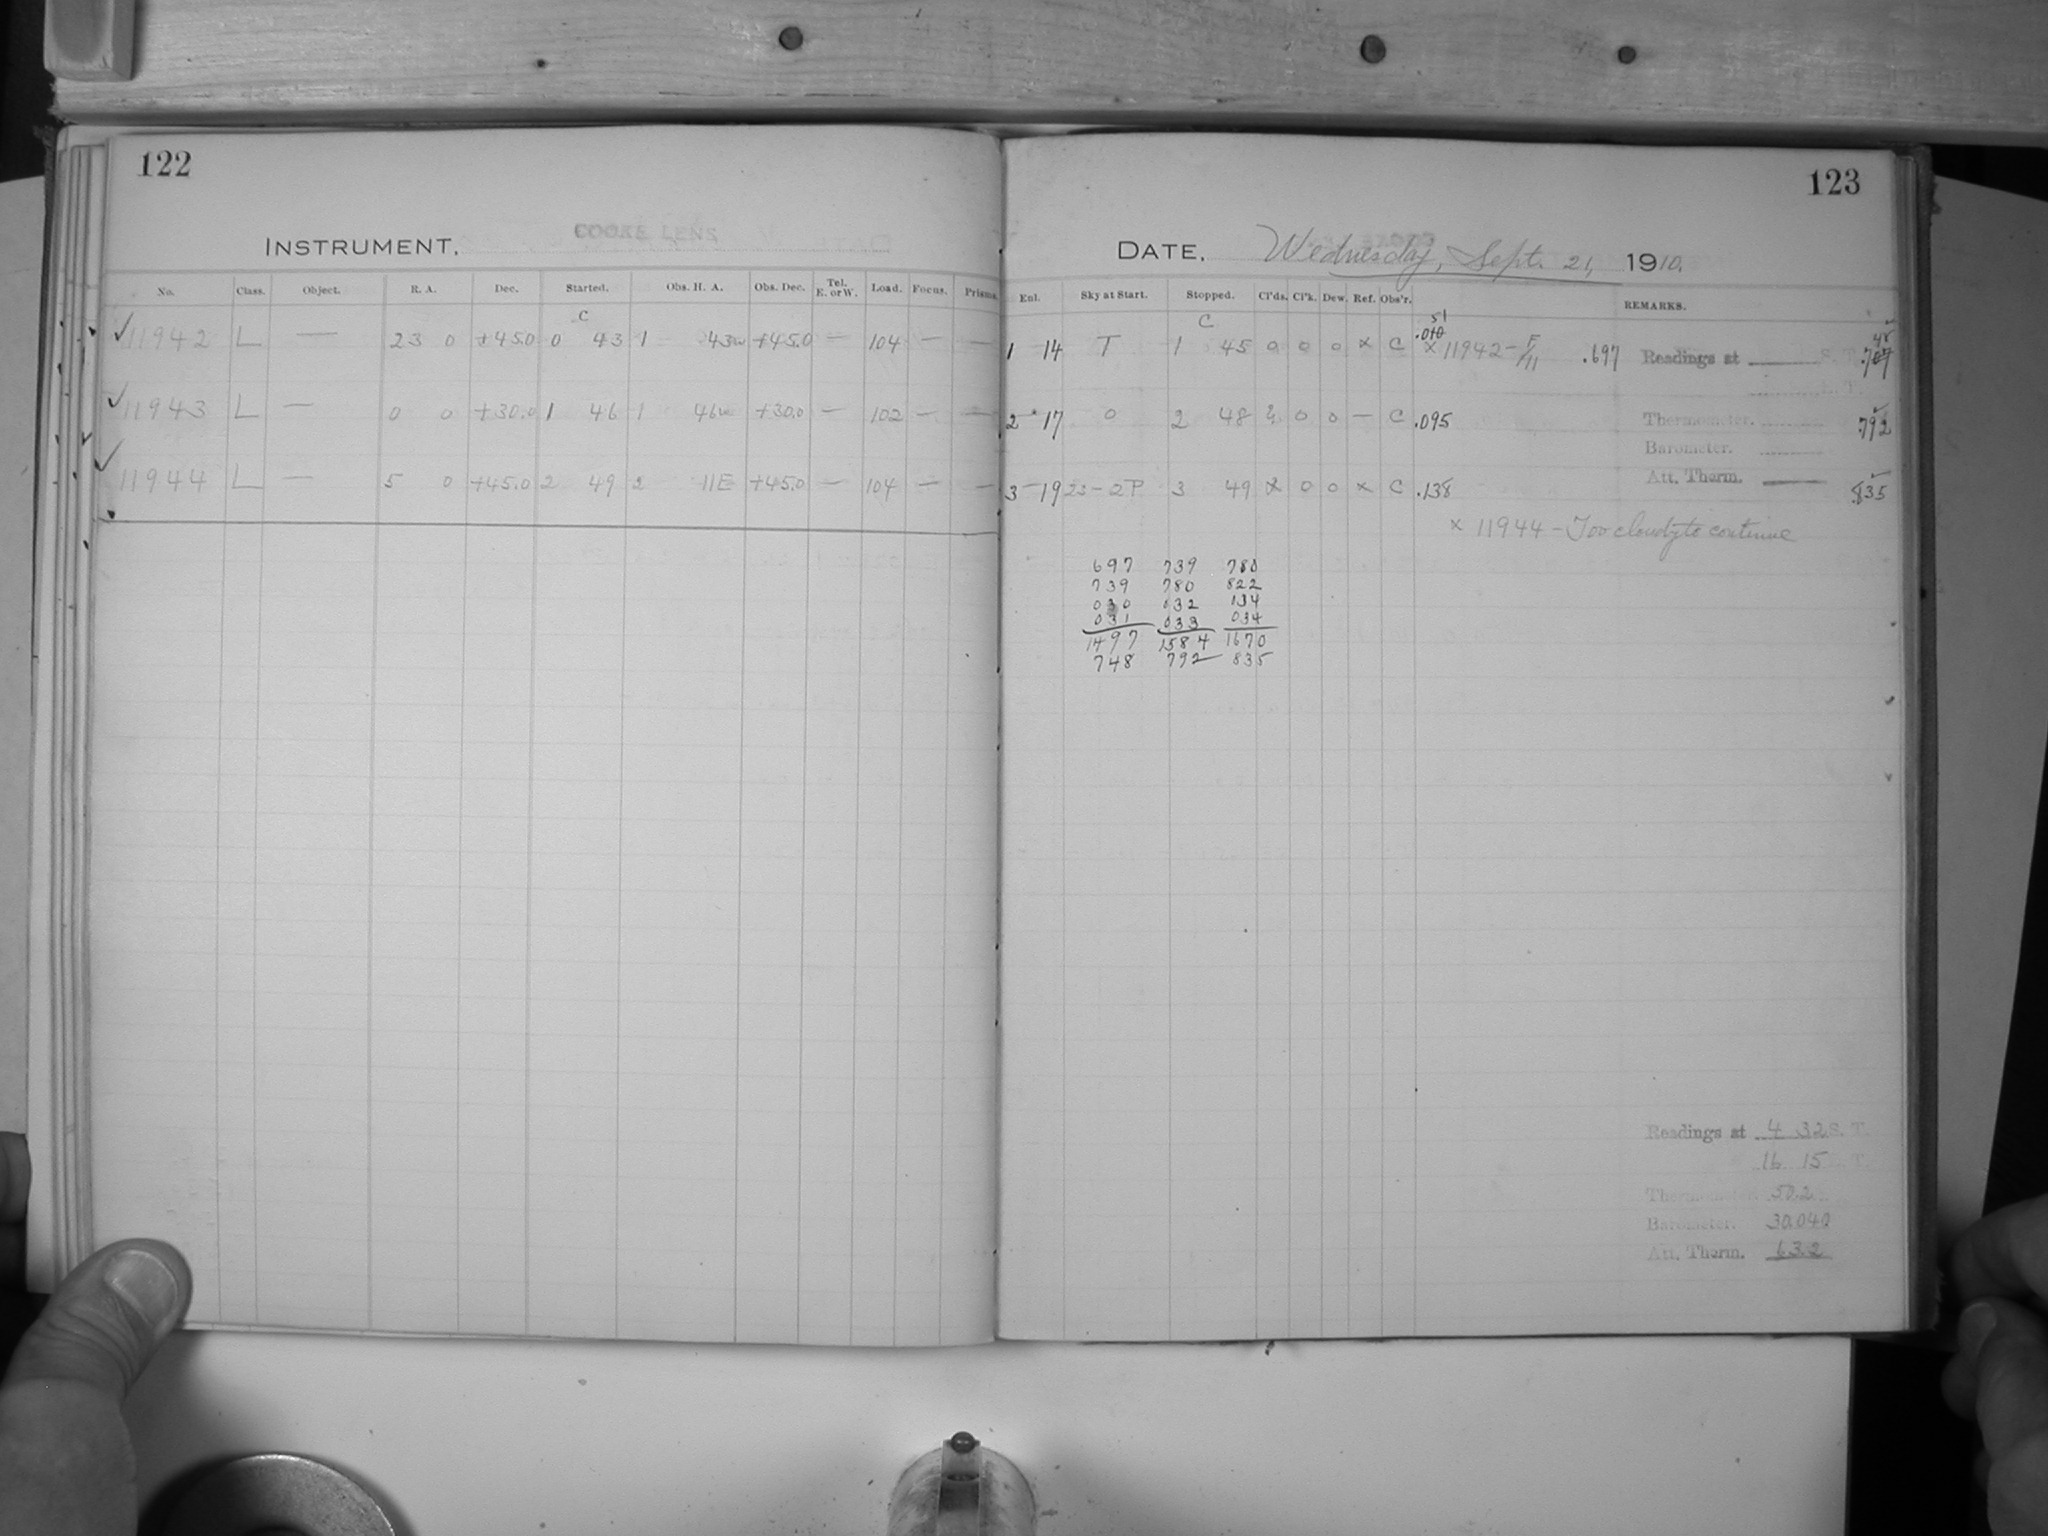 122
INSTRUMENT, COOKE LENS
No. Class. Object. R. A. Dec. Started. Obs. H. A. Obs. Dec. Tel. E. or W. Load. Focus. Prisms.
C
✓ 11942 L — 23 0 +45.0 0 43 1 43w +45.0 — 104 — —
✓ 11943 L — 0 0 +30.0 1 46 1 46w +30.0 — 102 — —
✓ 11944 L — 5 0 +45.0 2 49 2 11E +45.0 — 104 — —
123
DATE, Wednesday, Sept. 21, 1910.
Enl. Sky at Start. Stopped. Cl'ds. Cl'k. Dew. Ref. Obs'r. REMARKS.
C
51
48
1 14 T 1 45 0 0 0 x C x 11942 - F/11 .697 Readings at S. T.
2 17 0 2 48 0 0 — C .095 Thermometer. .792
Barometer.
3 19 23-2P 3 49 x 0 0 x C .138 Att. Therm. .835
x 11944 - Too cloudy to continue
697 739 780
739 780 822
030 032 034
031 033 034
1497 1584 1670
748 792 835
Readings at 4 32 S. T.
16 15 T.
Thermometer. 50.2
Barometer. 30.040
Att. Therm. 63.2